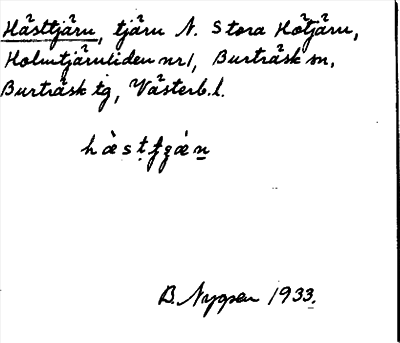 Hästtjärn, tjärn N. Stora Hötjärn,
Holmtjärnliden nr 1, Burträsk sn,
Burträsk tg, Västerb. l.
B. Nygren 1933.